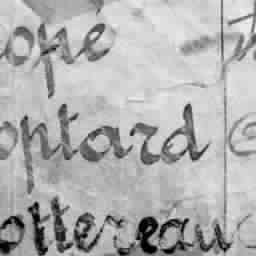 opé
optard
ottereau